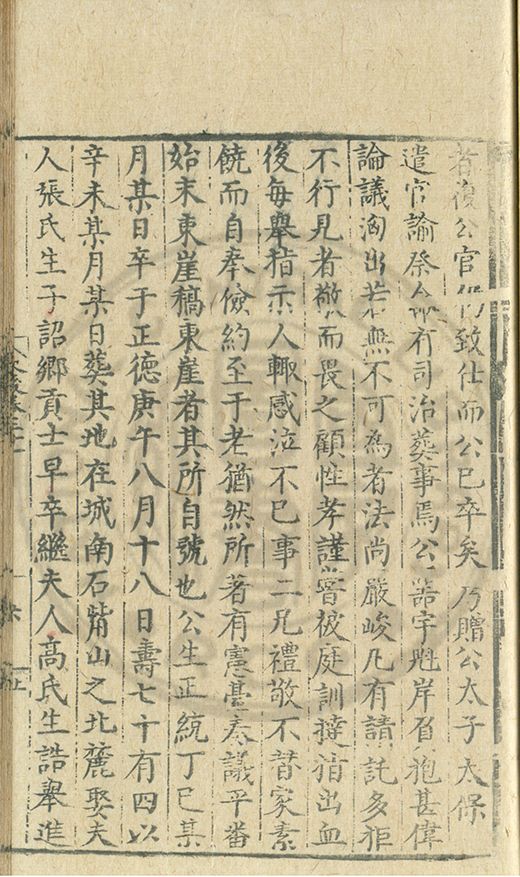 者復公官仍致仕而公已卒矣乃贈公太子太保
遣官諭祭命有司治葬事焉公器宇魁岸負抱甚偉
論議洶出若無不可為者法尚嚴峻凡有請託多拒
不行見者敬而畏之顧性孝謹嘗被庭訓撻指出血
後每舉指示人輒感泣不已事二兄禮敬不替家素
饒而自奉儉約至于老猶然所著有憲臺奏議平番
始末東崖稿東崖者其所自號也公生正統丁巳某
月某日卒于正德庚午八月十八日壽七十有四以
辛未某月某日葬其地在城南石觜山之北麓娶夫
人張氏生子詔鄉貢士早卒繼夫人高氏生誥舉進